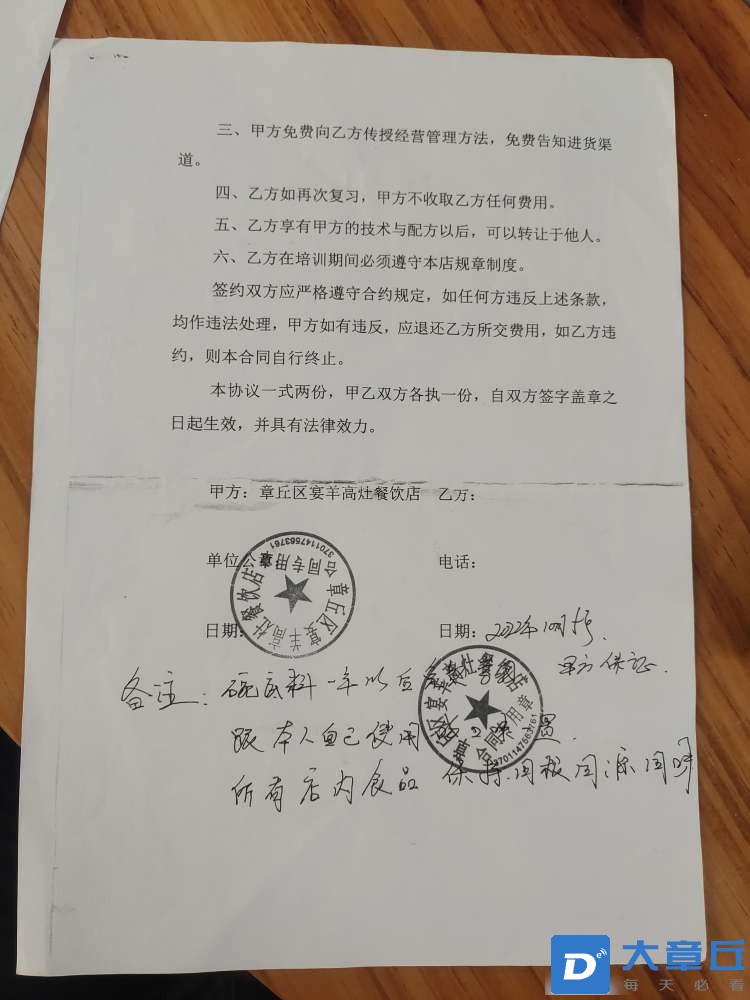 三、甲方免费向乙方传授经营管理方法，免费告知进货渠
道。
四、乙方如再次复习，甲方不收取乙方任何费用。
五、乙方享有甲方的技术与配方以后，可以转让于他人。
六、乙方在培训期间必须遵守本店规章制度。
签约双方应严格遵守合约规定，如任何方违反上述条款，
均作违法处理，甲方如有违反，应退还乙方所交费用，如乙方违
约，则本合同自行终止。
本协议一式两份，甲乙双方各执一份，自双方签字盖章之
日起生效，并具有法律效力。
甲方：章丘区宴羊高灶餐饮店 乙方：
单位公章
章丘区宴羊高灶餐饮店
合同专用章
3701147563761
电话：
日期：
日期：2022年10月5号
甲方保证
备注：碗底料一年以
跟本人自己使用
所有店内食品 保持同根同源同
章丘区宴羊高灶餐饮店
合同专用章
3701147563761
大章丘
每天必看